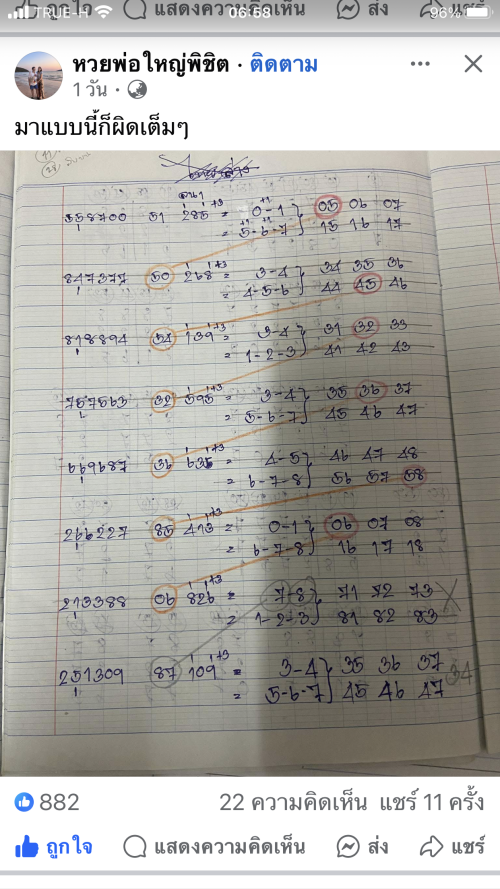 ถูกใจ แสดงความคิดเห็น ส่ง แชร์
TRUE-H 06:58 96%
หวยพ่อใหญ่พิชิต · ติดตาม
1 วัน ·
มาแบบนี้ก็ผิดเต็มๆ
358700 51 285 = 0-1 } 05 06 07
= 5-6-7 } 15 16 17
847377 50 268 = 3-4 } 34 35 36
= 4-5-6 } 44 45 46
818894 54 139 = 3-4 } 31 32 33
= 1-2-3 } 41 42 43
757563 32 595 = 3-4 } 35 36 37
= 5-6-7 } 45 46 47
669687 36 635 = 4-5 } 46 47 48
= 6-7-8 } 56 57 58
266227 85 413 = 0-1 } 06 07 08
= 6-7-8 } 16 17 18
213388 06 826 = 7-8 } 71 72 73
= 1-2-3 } 81 82 83
251309 87 109 +3 = 3-4 } 35 36 37
= 5-6-7 } 45 46 47
34
882 22 ความคิดเห็น แชร์ 11 ครั้ง
ถูกใจ แสดงความคิดเห็น ส่ง แชร์